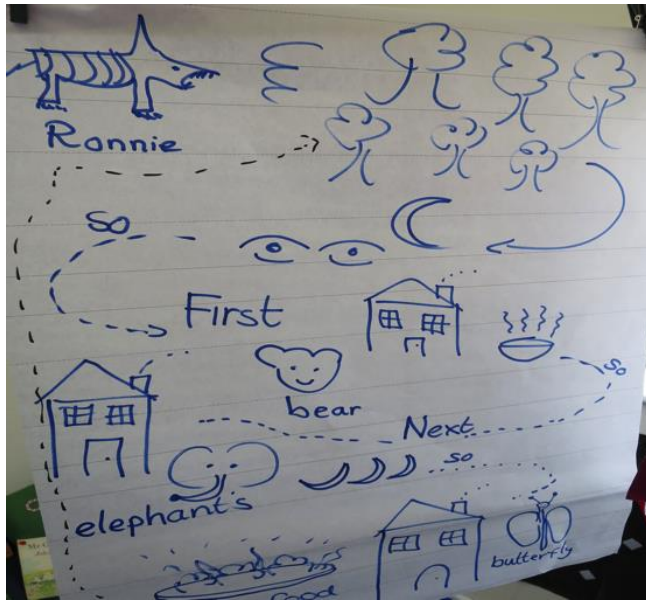 Ronnie
so
First
so
bear
Next
so
elephants
butterfly
food